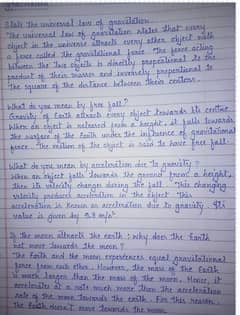 State the universal law of gravitation
The universal law of gravitation states that every
object in the universe attracts every other object with
a force called the gravitational force. The force acting
between the two objects is directly proportional to the
product of their masses and inversely proportional to
the square of the distance between their centers.
What do you mean by free fall?
Gravity of Earth attracts every object towards its centre.
When an object is released from a height, it falls towards
the surface of the Earth under the influence of gravitational
force. The motion of the object is said to have free fall.
What do you mean by acceleration due to gravity?
When an object falls towards the ground from a height,
then its velocity changes during the fall. This changing
velocity produces acceleration in the object. This
acceleration is known as acceleration due to gravity. Its
value is given by 9.8 m/s²
If the moon attracts the earth, why does the Earth
not move towards the moon?
The Earth and the moon experiences equal gravitational
force from each other. However, the mass of the Earth
is much larger than the mass of the moon. Hence, it
accelerates at a rate much more than the acceleration
rate of the moon towards the Earth. For this reason,
the Earth doesn't move towards the moon